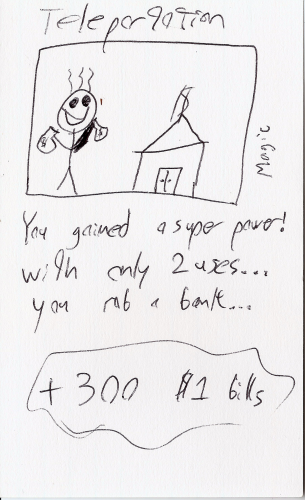 Teleportation
$
Magic
You gained a super power!
with only 2 uses...
you rob a bank...
+ 300 $1 bills